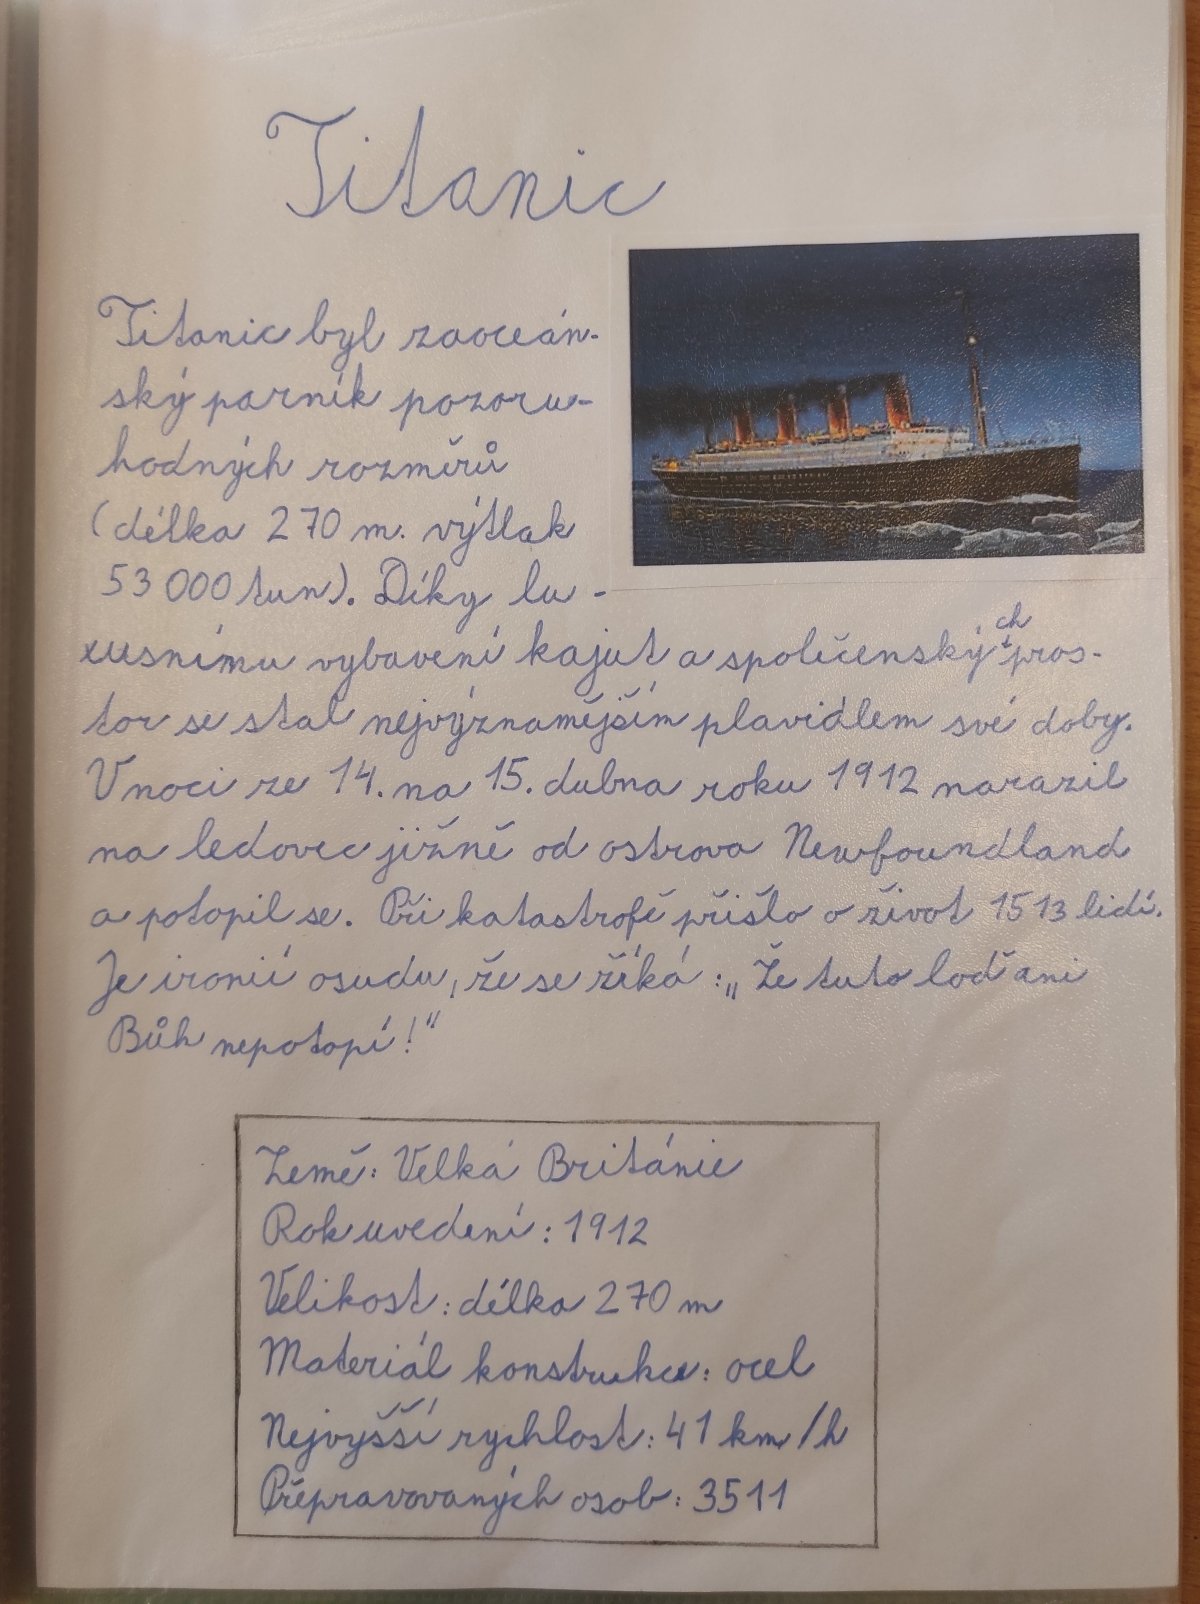 Titanic
Titanic byl zaoceán-
ský parník pozoru-
hodných rozměrů
(délka 270 m. výtlak
53 000 tun). Díky lu-
xusnímu vybavení kajut a společenských pros-
tor se stal nejvýznamějším plavidlem své doby.
V noci ze 14. na 15. dubna roku 1912 narazil
na ledovec jižně od ostrova Newfoundland
a potopil se. Při katastrofě přišlo o život 1513 lidí.
Je ironií osudu, že se říká: „Že tuto loď ani
Bůh nepotopí!"
Země: Velká Británie
Rok uvedení: 1912
Velikost: délka 270 m
Materiál konstrukce: ocel
Nejvyšší rychlost: 41 km/h
Přepravovaných osob: 3511